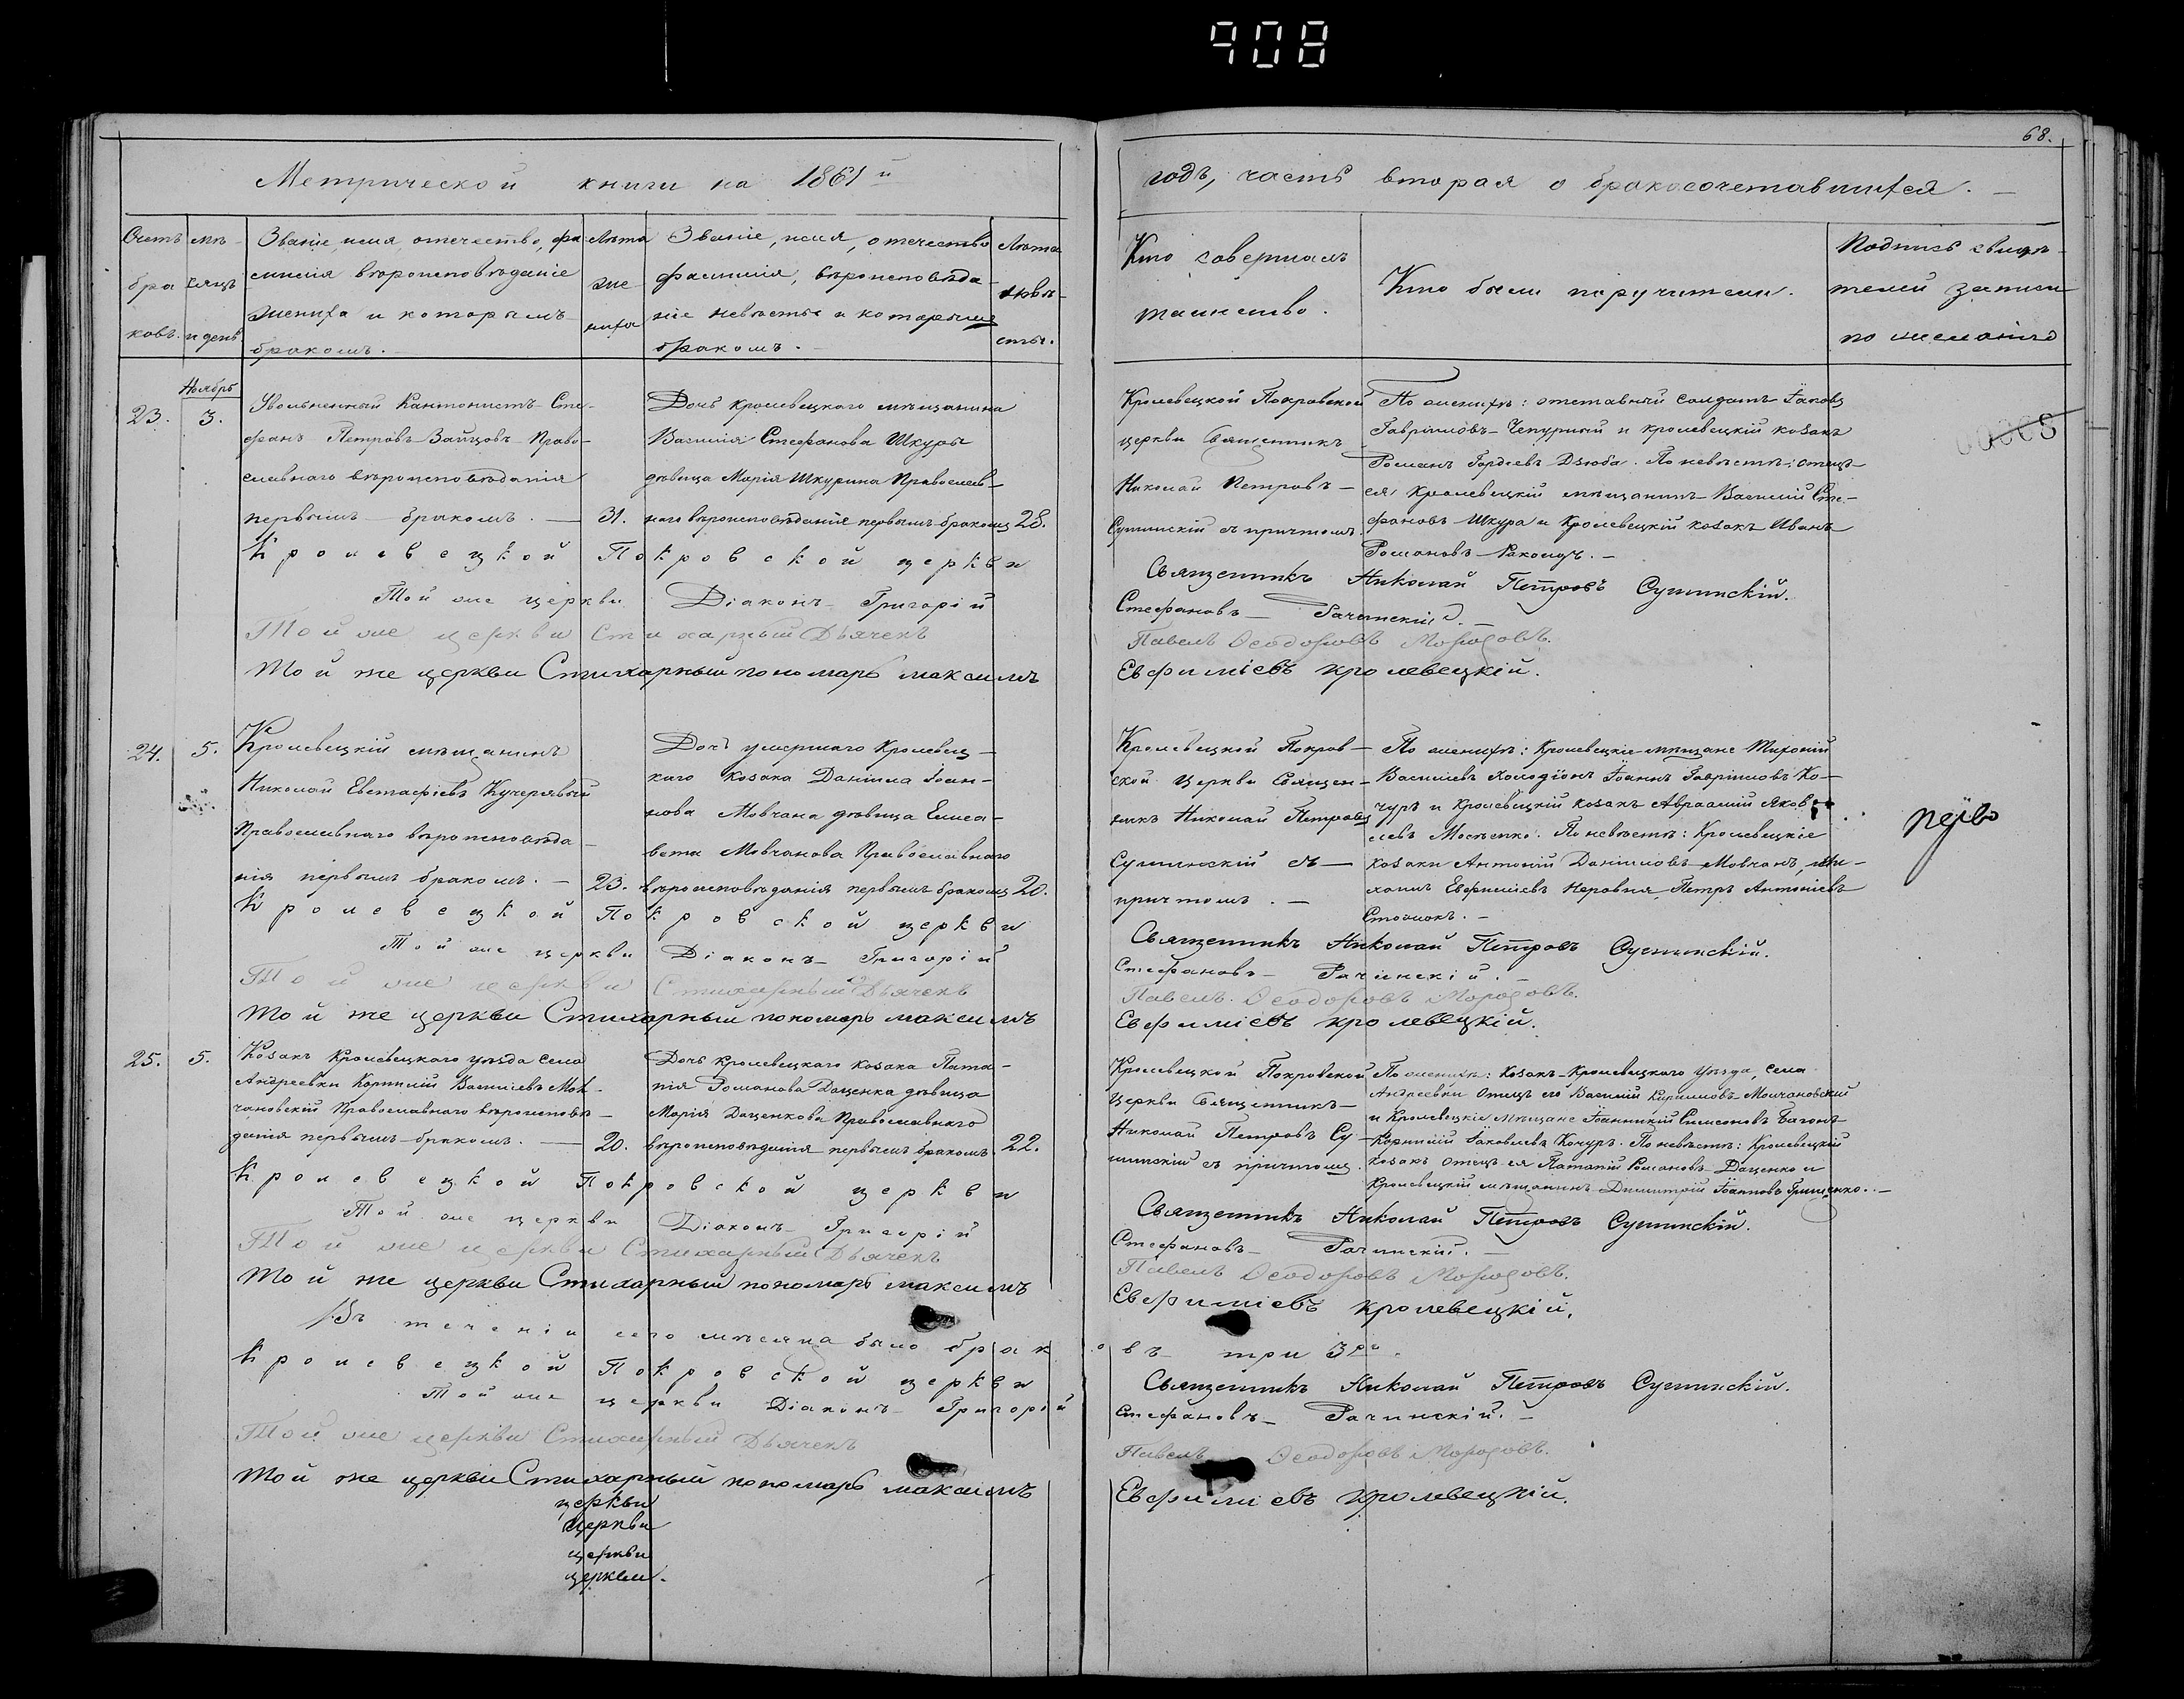 908
68.
Метрической книги на 1861й
годъ, часть вторая о бракосочетавшихся.
Счетъ браковъ.
мѣсяцъ и день.
Званіе, имя, отечество, фамилія вѣроисповѣданіе жениха и которымъ бракомъ.
Лѣта жениха
Званіе, имя, отечество фамилія, вѣроисповѣданіе невѣсты и которымъ бракомъ.
Лѣта невѣсты.
Кто совершалъ таинство.
Кто были поручители.
Подпись свидѣтелей записи по желанію
Ноябрь
23. 3.
Уволненный Кантонистъ Сте-
фанъ Петровъ Зайцовъ Право-
славнаго вѣроисповѣданія
первымъ бракомъ. — 31.
Дочь кролевецкого мѣщанина
Василія Стефанова Шкуры
дѣвица Марія Шкурина Православ-
наго вѣроисповѣданіе первымъ бракомъ 28.
Кролевецкой Покровской
церкви Священникъ
Николай Петровъ —
Сушинскій съ причтомъ.
По женихѣ: отставный солдатъ Іаковъ
Гавріиловъ Чепурный и кролевецкій козакъ
Романъ Гордеевъ Дзюба. По невѣстѣ: отецъ
ея Кролевецкій мѣщанинъ Василий Сте-
фановъ Шкура и Кролевецкій козакъ Иванъ
Романовъ
00068
Кролевецкой Покровской церкви Священникъ Николай Петровъ Сушинскій.
Той же церкви Діаконъ Григорій Стефановъ Рачинскій.
Той же церкви Стихарный Дьячекъ Павелъ Ѳеодоровъ Морозовъ.
Той же церкви Стихарный пономарь максимъ Евфиміевъ кролевецкій.
24. 5.
Кролевецкій мѣщанинъ
Николай Евстафіевъ Кучерявый
Православнаго вѣроисповѣда-
нія первымъ бракомъ. — 23.
Дочъ умершаго Кролевец-
каго Козака Даніила Іоан-
нова Мовчана дѣвица Елиса-
вета Мовчанова Православнаго
вѣроисповѣданія первымъ бракомъ 20.
Кролевецкой Покров-
ской Церкви Священ-
никъ Николай Петровъ
Сушинскій съ
причтомъ. —
По женихѣ: Кролевецкіе мѣщане Тихоній
Василіевъ Холодіонъ Іоаннъ Гавріиловъ Ко-
чуръ и Кролевецкій козакъ Авраамій Яков-
левъ По невѣстѣ: Кролевецкіе
козаки Антоній Даніиловъ Мовчанъ, Ми-
хаилъ Евфиміевъ Неровня, Петръ Антоніевъ
Кролевецкой Покровской церкви Священникъ Николай Петровъ Сушинскій.
Той же церкви Діаконъ Григорій Стефановъ Рачинскій.
Той же церкви Стихарный Дьячекъ Павелъ Ѳеодоровъ Морозовъ.
Той же церкви Стихарный пономарь максимъ Евфиміевъ кролевецкій.
25. 5.
Козакъ Кролевецкого уѣзда села
Андреевки Корнилій Василіевъ Мол-
чановскій Православнаго вѣроисповѣ-
данія первымъ бракомъ. — 20.
Дочь кролевецкого козака Пата-
пія Романова Даценка дѣвица
Марія Даценкова Православнаго
вѣроисповѣданія первымъ бракомъ. 22.
Кролевецкой Покровской
Церкви Священникъ
Николай Петровъ Су-
шинскій съ причтомъ.
По женихѣ: Козакъ Кролевецкого Уѣзда, села
Андреевки Отецъ его Василій Кириловъ Молчановскій
и Кролевецкіе Мѣщане Іоанникій Симеоновъ
Корнилій Іаковлевъ Кочуръ. По невѣстѣ: Кролевецкій
козакъ Отецъ ея Патапій Романовъ Даценко и
Кролевецкій мѣщанинъ Димитрій Іоанновъ Грищенко.
Кролевецкой Покровской церкви Священникъ Николай Петровъ Сушинскій.
Той же церкви Діаконъ Григорій Стефановъ Рачинскій.
Той же церкви Стихарный Дьячекъ Павелъ Ѳеодоровъ Морозовъ.
Той же церкви Стихарный пономарь максимъ Евфиміевъ кролевецкій.
Въ теченіи сего мѣсяца было браковъ три 3ри.
Кролевецкой Покровской церкви Священникъ Николай Петровъ Сушинскій.
Той же церкви Діаконъ Григорій Стефановъ Рачинскій.
Той же церкви Стихарный Дьячекъ Павелъ Ѳеодоровъ Морозовъ.
Той же церкви Стихарный пономарь максимъ Евфиміевъ кролевецкій.
церкви
Церкви
церкви
церкви.